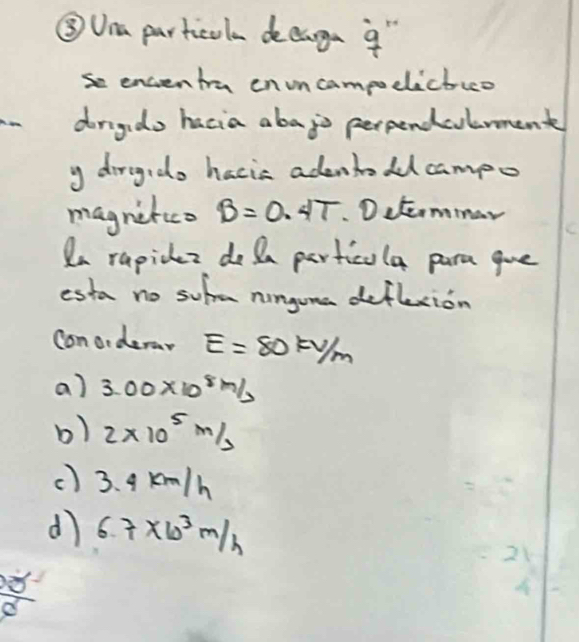 ③ Una particula de carga "q"
se encuentra en un campo eléctrico
dirigido hacia abajo perpendicularmente
y dirigido hacia adentro del campo
magnético B = 0.4T. Determinar
la rapidez de la partícula para que
esta no sufra ninguna deflexión
considerar E = 80 kV/m
a) 3.00 x 10⁸ m/s
b) 2 x 10⁵ m/s
c) 3.4 km/h
d) 6.7 x 10³ m/h